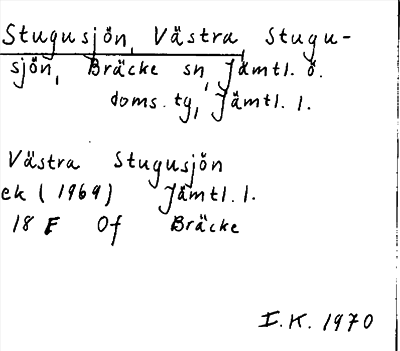 Stugusjön, Västra Stugu-
sjön, Bräcke sn, Jämtl. ö.
doms. tg, Jämtl. l.
Västra Stugusjön
ek (1969) Jämtl. l.
18 F Of Bräcke
I.K. 1970